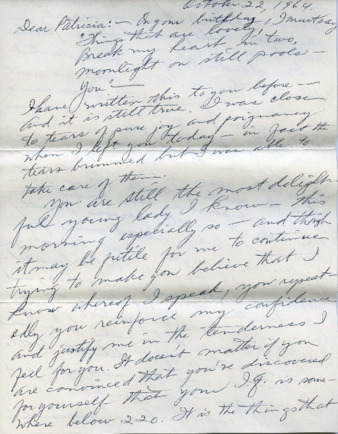 October 22, 1964.
Dear Patricia:— On your birthday, I must say
"Things that are lovely
Break my heart in two,
moonlight on still pools —
you"—
I have written this to you before —
and it is still true. I was close
to tears of pure joy and poignancy
when I left you today — in fact the
tears brimmed but I was able to
take care of them.
You are still the most delight-
ful young lady I know — this
morning especially so — and though
it may be futile for me to continue
trying to make you believe that I
know whereof I speak, you repeat-
edly you reinforce my confidence
and justify me in the tenderness I
feel for you. It doesn't matter if you
are convinced that you've discovered
for yourself that your I.Q. is some-
where below 220. It is the things that